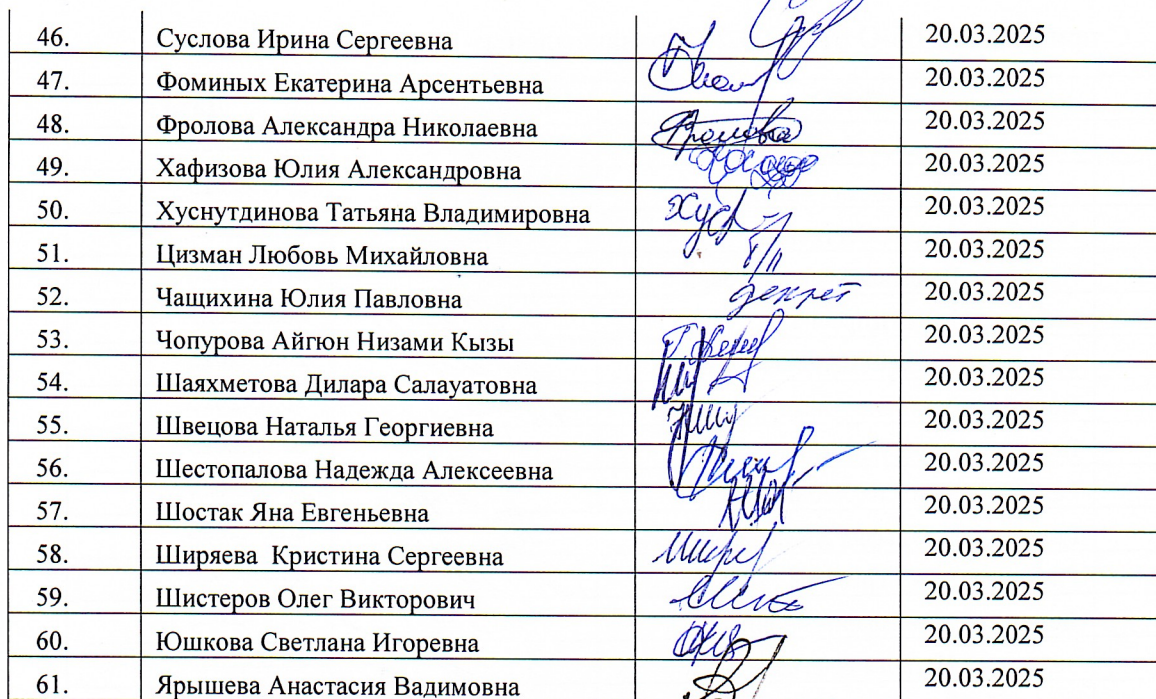 46. Суслова Ирина Сергеевна 20.03.2025
47. Фоминых Екатерина Арсентьевна 20.03.2025
48. Фролова Александра Николаевна Фролова 20.03.2025
49. Хафизова Юлия Александровна 20.03.2025
50. Хуснутдинова Татьяна Владимировна 20.03.2025
51. Цизман Любовь Михайловна 20.03.2025
52. Чащихина Юлия Павловна декрет 20.03.2025
53. Чопурова Айгюн Низами Кызы 20.03.2025
54. Шаяхметова Дилара Салауатовна 20.03.2025
55. Швецова Наталья Георгиевна 20.03.2025
56. Шестопалова Надежда Алексеевна 20.03.2025
57. Шостак Яна Евгеньевна 20.03.2025
58. Ширяева Кристина Сергеевна 20.03.2025
59. Шистеров Олег Викторович 20.03.2025
60. Юшкова Светлана Игоревна 20.03.2025
61. Ярышева Анастасия Вадимовна 20.03.2025